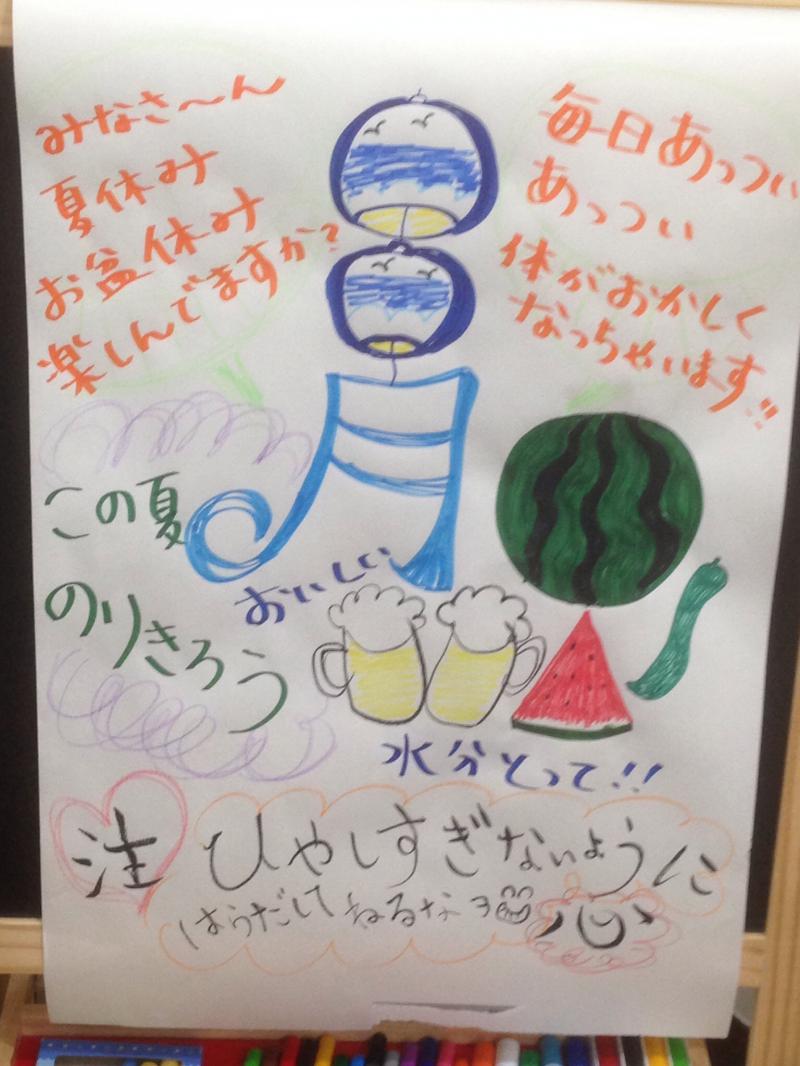 みなさ〜ん
夏休み
お盆休み
楽しんでますか?
毎日あっつぃ
あっつぃ
体がおかしく
なっちゃいます!!
8月
この夏
のりきろう
おいしい
水分とって!!
注
ひやしすぎないように
はらだしてねるなヨ
心